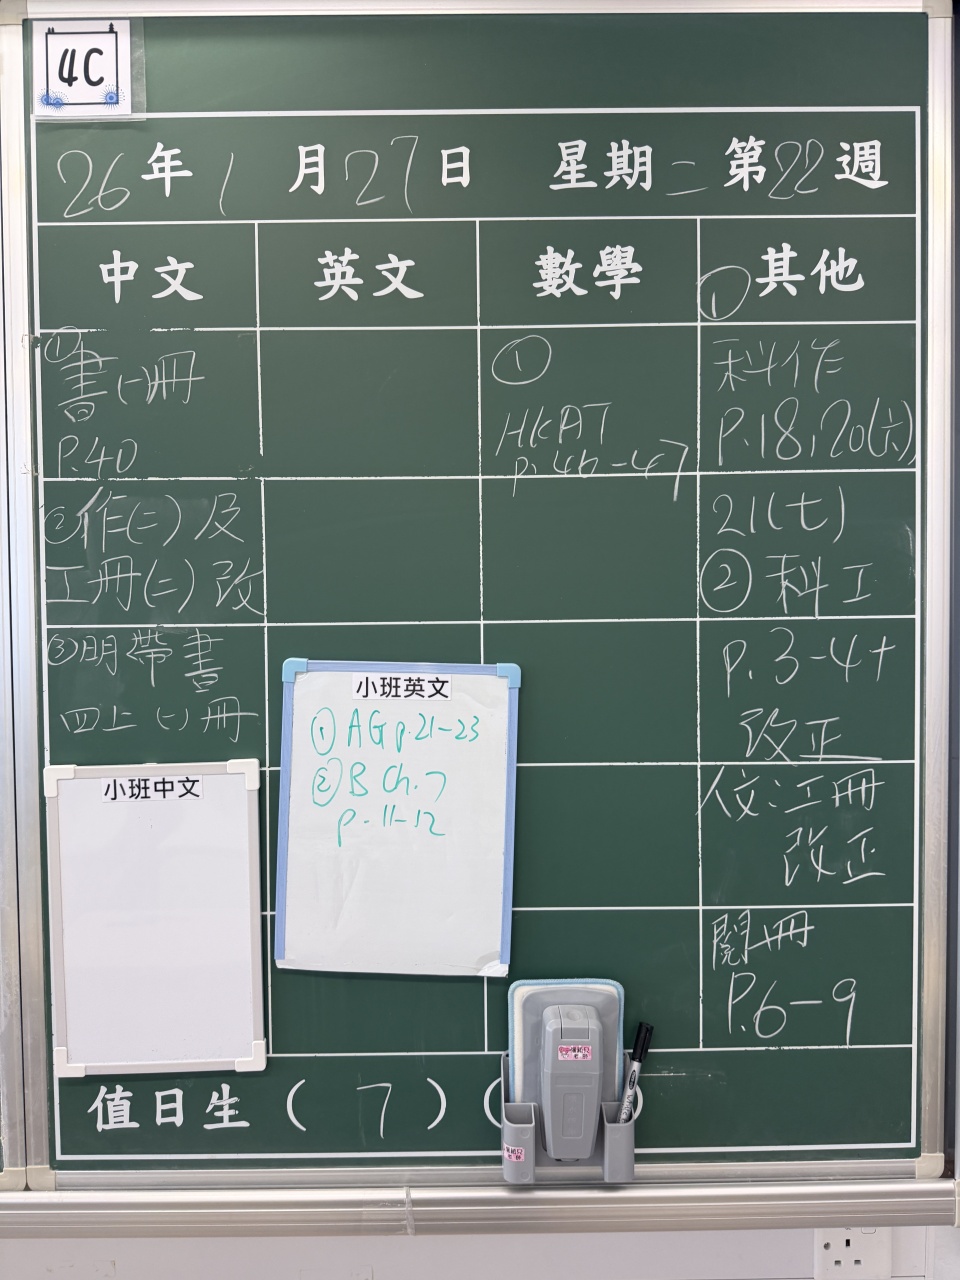 4C
26年1月27日 星期二 第22週
中文 英文 數學 其他
①
書(一)冊
P.40
②作(二)及
工冊(二)改
③明帶書
四上(一)冊
小班中文
小班英文
① AG p.21-23
② B Ch.7
p.11-12
①
HKAT
p.46-47
①
科作
P.18,20(六)
21(七)
② 科工
p.3-4+
改正
人文:工冊
改正
閱冊
P.6-9
值日生(7)(